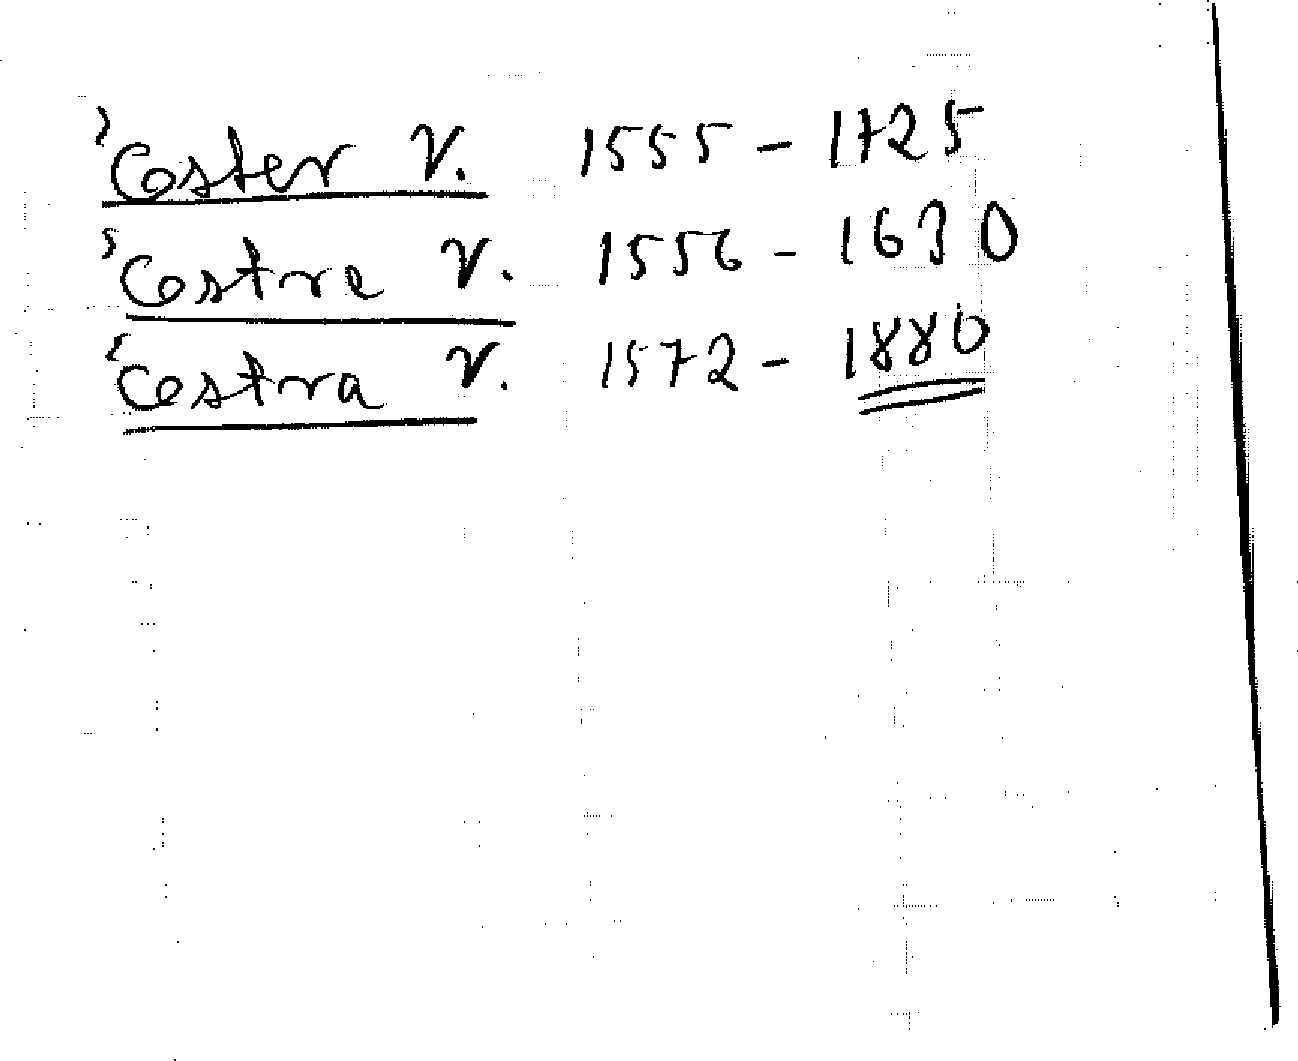 'Coster V. 1555 - 1725
'Costre V. 1556 - 1630
'Costra V. 1572 - 1880